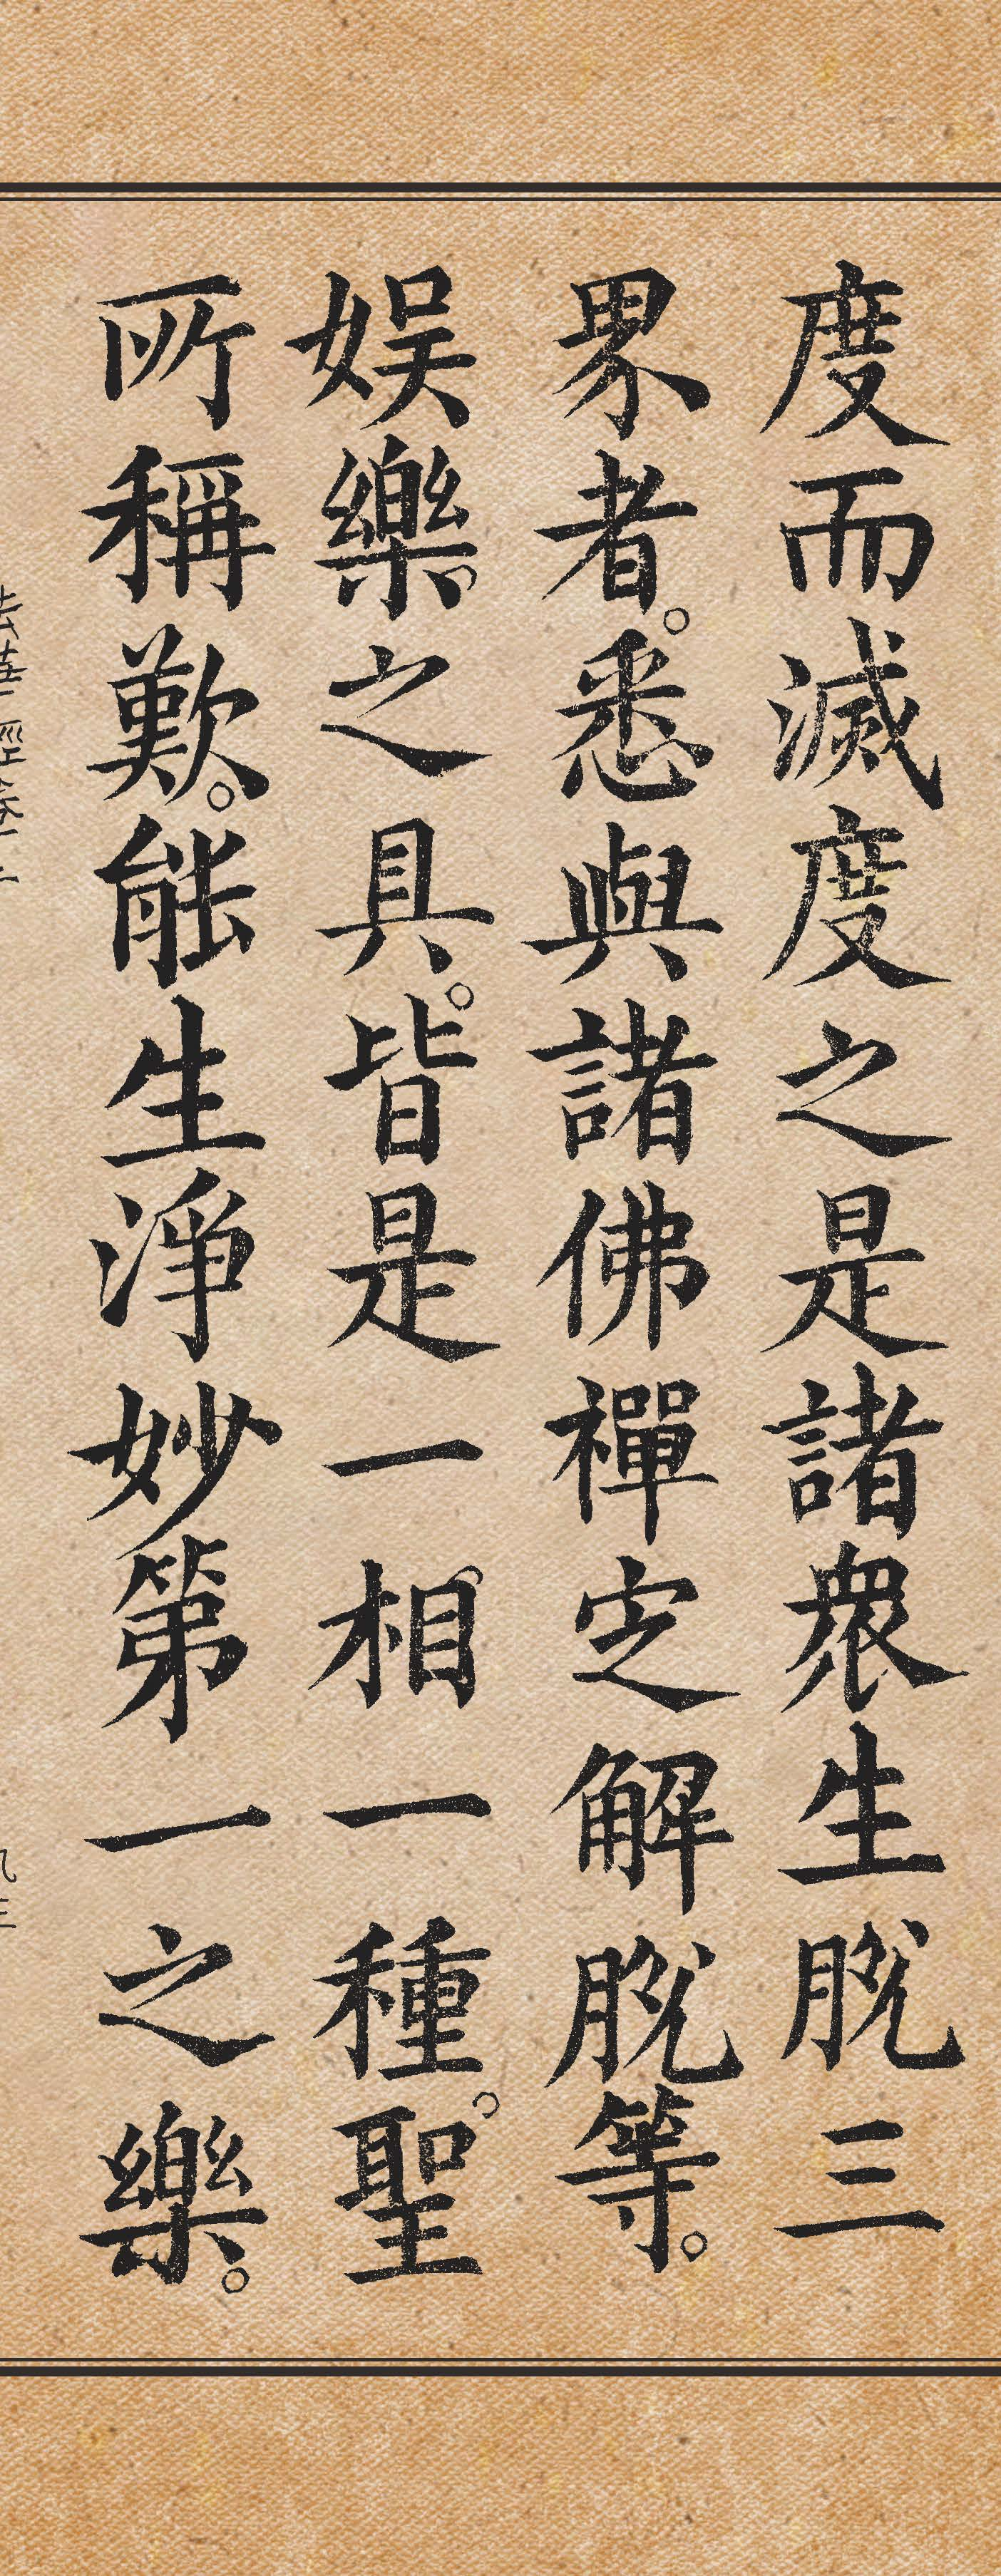 度而滅度之是諸衆生脫三
界者。悉與諸佛禪定解脫等。
娛樂之具。皆是一相一種。聖
所稱歎。能生淨妙第一之樂。